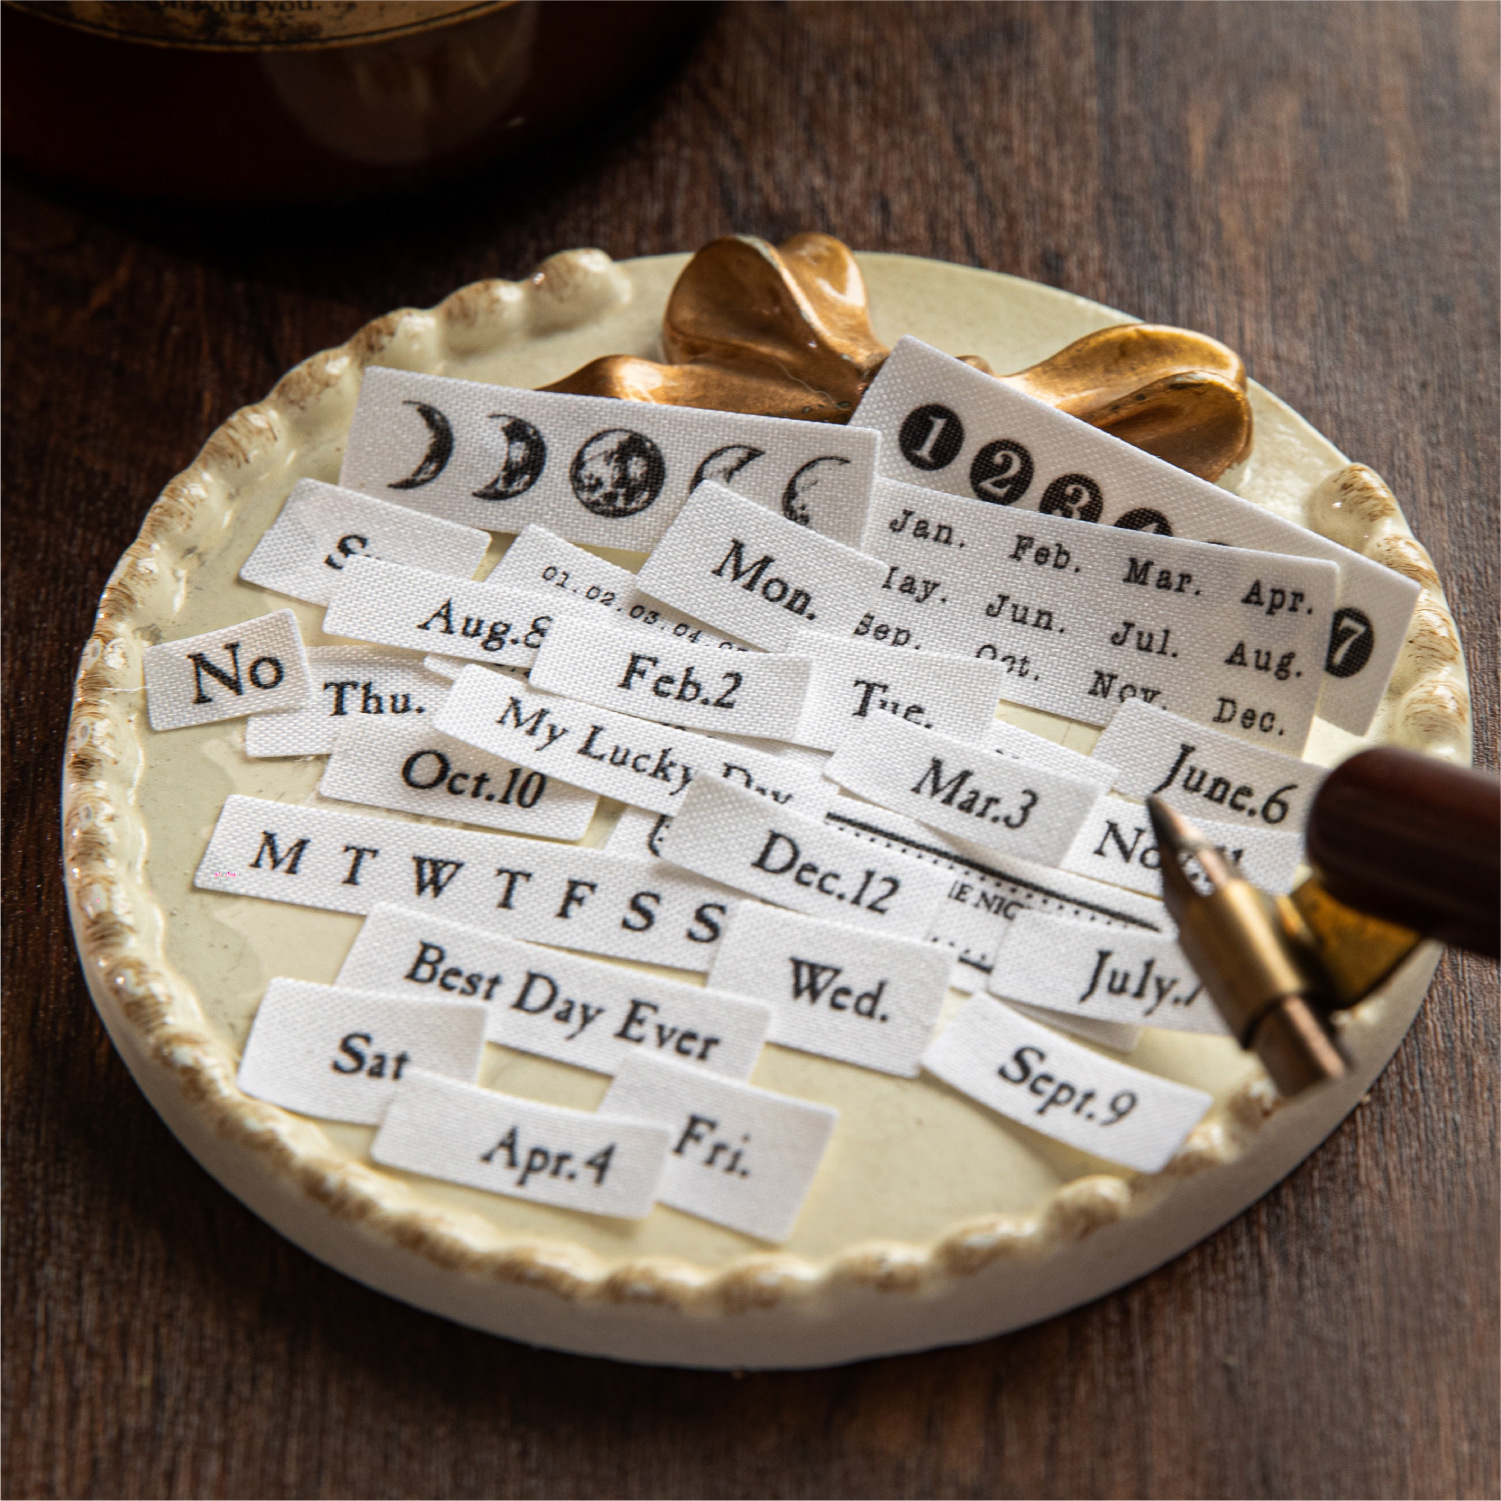 with you.
1 2 3 4
7
Jan. Feb. Mar. Apr.
Jun. Jul. Aug.
Sep. Oct. Nov. Dec.
Mon.
01.02.03.04.
Aug.8
No
Thu.
Feb.2
Tue.
My Lucky Day
Oct.10
Mar.3
June.6
Dec.12
M T W T F S S
July.7
Best Day Ever
Wed.
Sat
Sept.9
Apr.4
Fri.